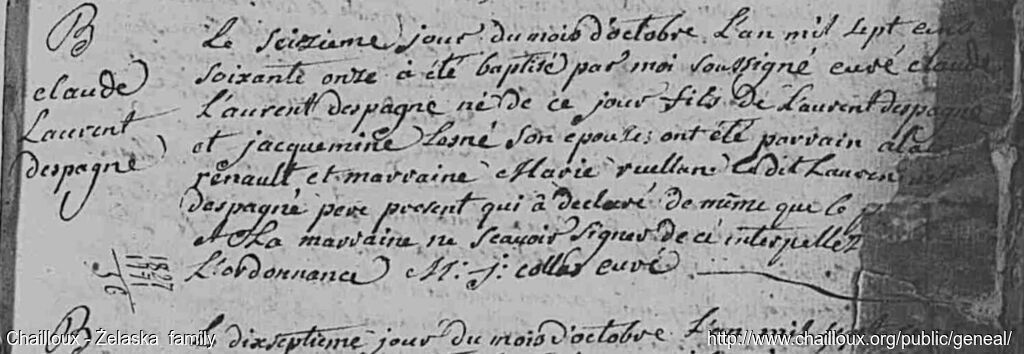 B
claude
Laurent
despagne
Le seizieme jour du mois d'octobre L'an mil sept cens
soixante onze à été baptisé par moi soussigné curé claude
Laurent despagne né de ce jour fils De Laurent despagne
et jacquemine Lesné son epouse; ont été parrain
renault et marraine Marie ruellan. Ledit Laurent
despagne pere present qui à declaré de même que le
et La marraine ne scavoir signer de ce interpellez
L'ordonnance M: j: collas curé
1827
1771
56
B
Le dixseptieme jour du mois d'octobre L'an mil
Chailloux - Żelaska family
http://www.chailloux.org/public/geneal/